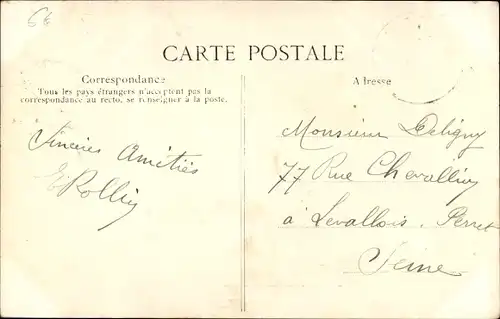 6€
CARTE POSTALE
Correspondance
Tous les pays étrangers n'acceptent pas la
correspondance au recto, se renseigner à la poste.
Adresse
Sincères Amitiés
E Rollin
Monsieur Deligny
77 Rue Chevallier
à Levallois-Perret
Seine